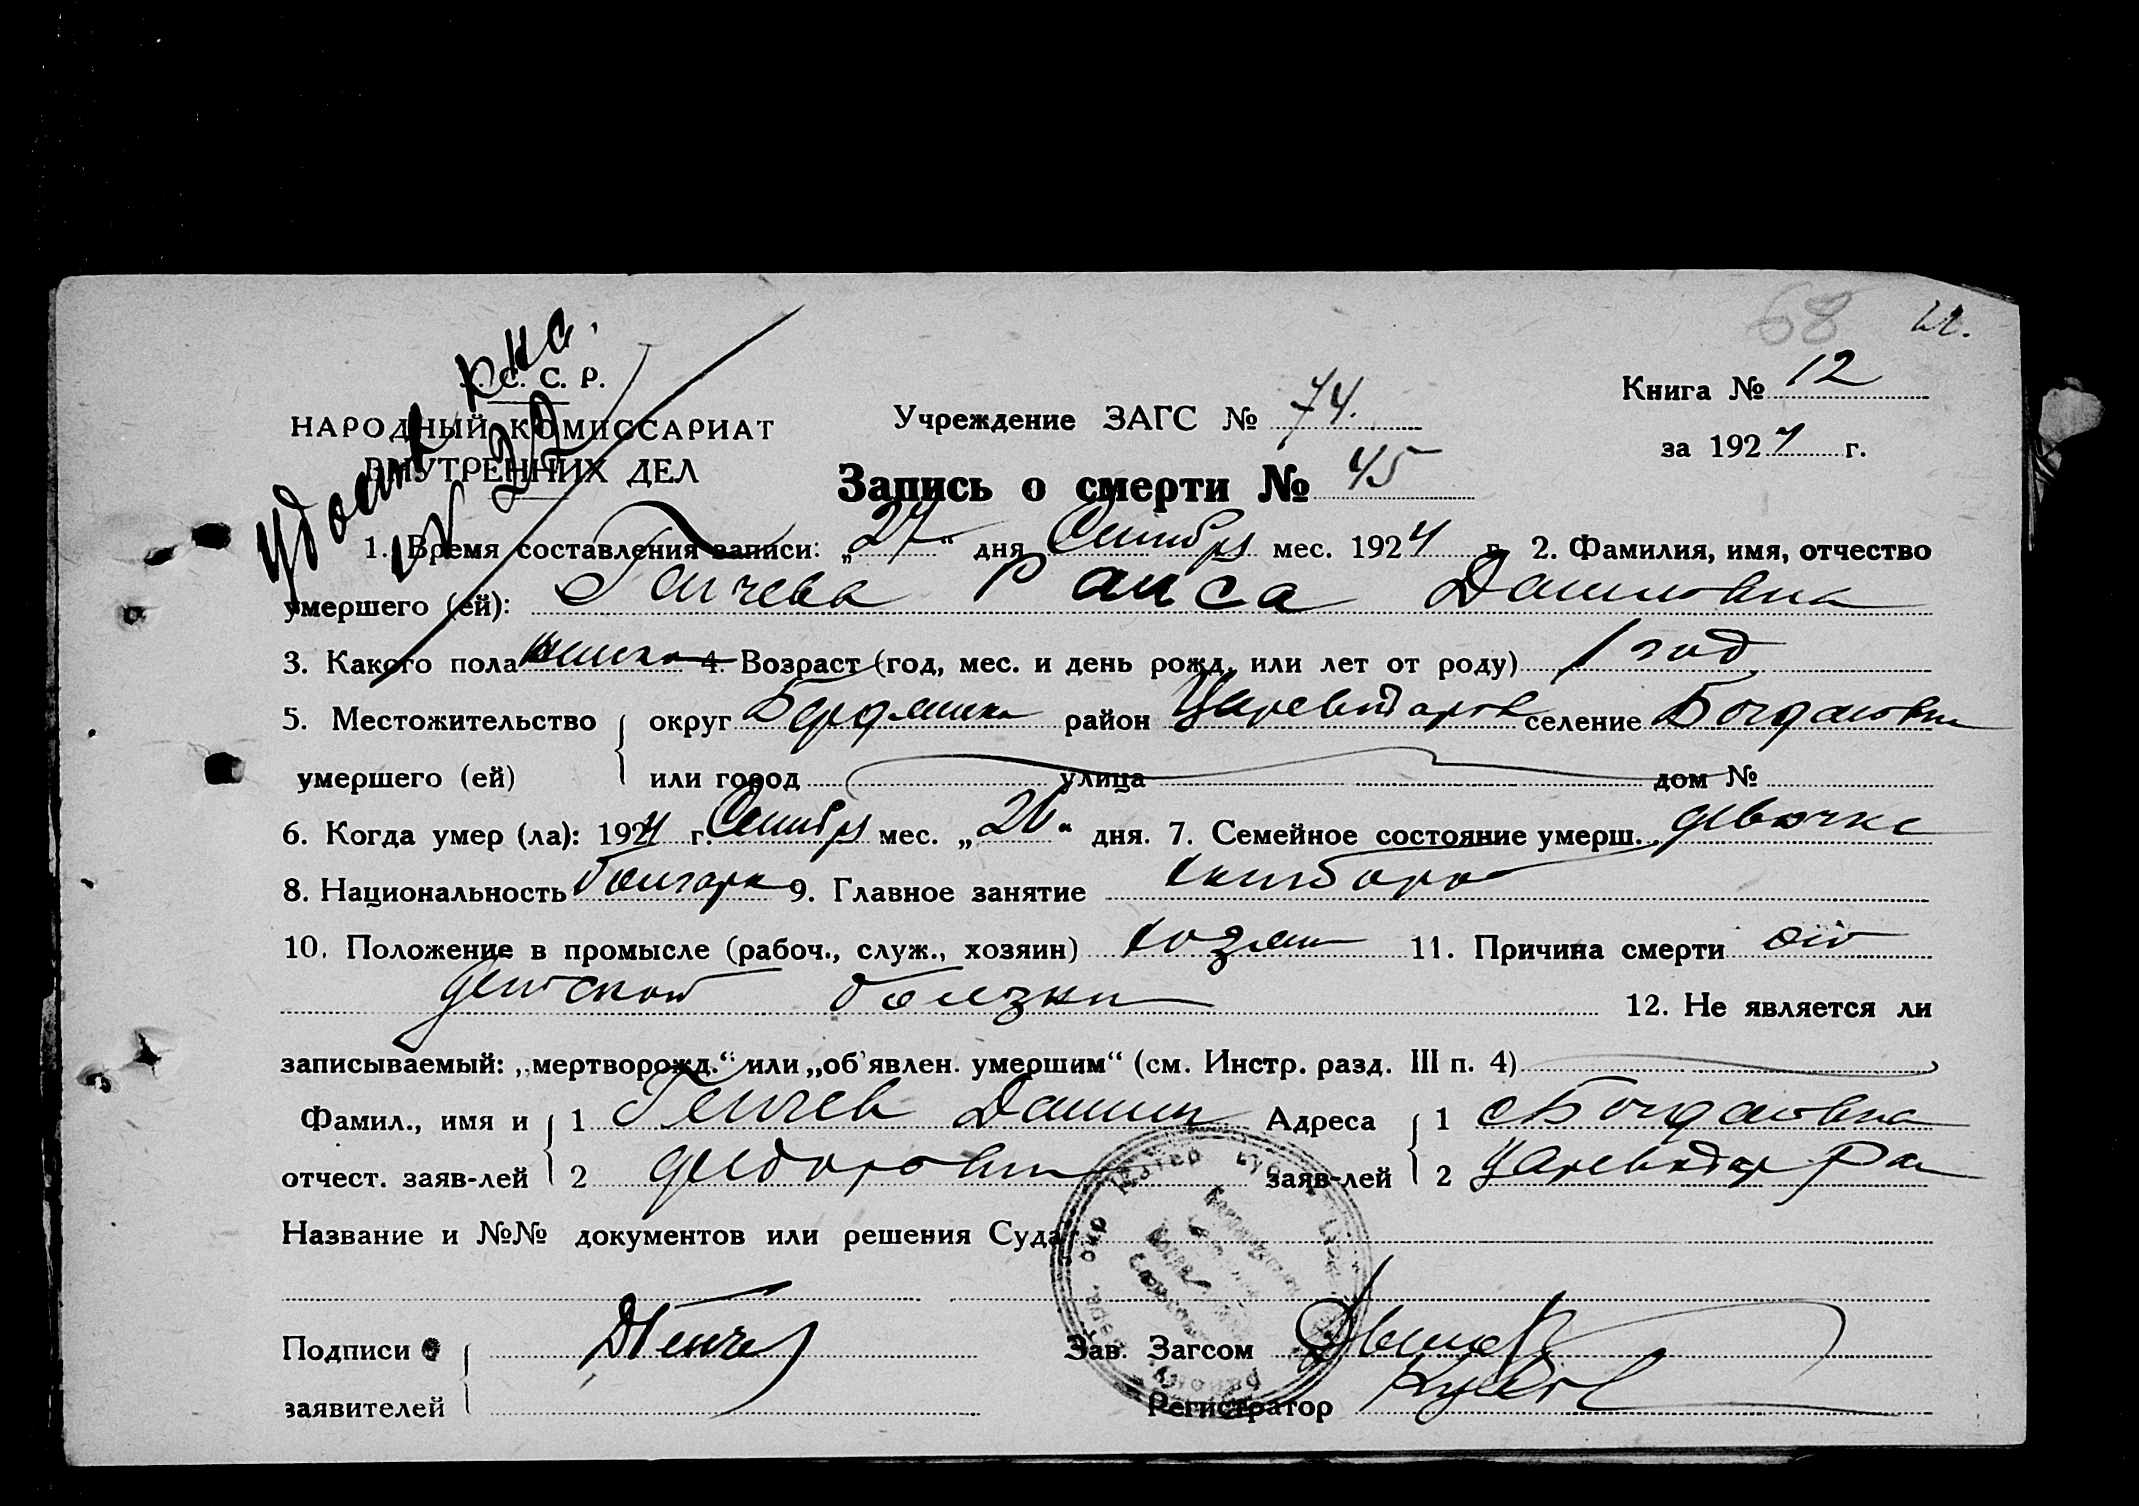 68
С. С. Р.
НАРОДНЫЙ КОМИССАРИАТ
ВНУТРЕННИХ ДЕЛ
Учреждение ЗАГС № 74.
Книга № 12
за 1924 г.
Запись о смерти № 45
1. Время составления записи: „27“ дня Сентября мес. 1924 г. 2. Фамилия, имя, отчество
умершего (ей): Генчева Раиса Даниловна
3. Какого пола женско 4. Возраст (год, мес. и день рожд. или лет от роду) 1 год
5. Местожительство округ Бердянск район Цареводаров селение Богдановка
умершего (ей) или город улица дом №
6. Когда умер (ла): 1924 г. Сентябр мес. „26“ дня. 7. Семейное состояние умерш. девочка
8. Национальность болгарка 9. Главное занятие хлебороб
10. Положение в промысле (рабоч., служ., хозяин) хозяин 11. Причина смерти от
детской болезни 12. Не является ли
записываемый: „мертворожд.“ или „об'явлен. умершим“ (см. Инстр. разд. III п. 4)
Фамил., имя и 1 Генчев Данил Адреса 1 с Богдановка
отчест. заяв-лей 2 Федорович заяв-лей 2 Цареводар Ра
Название и №№ документов или решения Суда:
Подписи ДГенчев Зав. Загсом
заявителей Регистратор